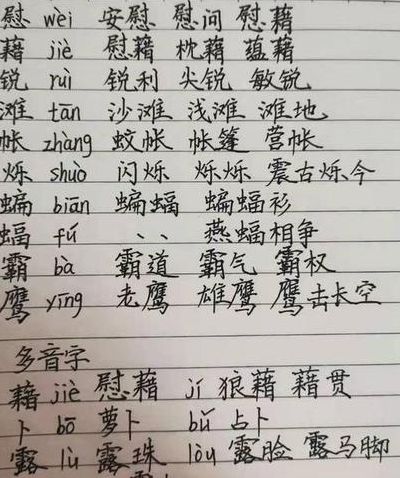 慰 wèi 安慰 慰问 慰藉
藉 jiè 慰藉 枕藉 蕴藉
锐 ruì 锐利 尖锐 敏锐
滩 tān 沙滩 浅滩 滩地
帐 zhàng 蚊帐 帐篷 营帐
烁 shuò 闪烁 烁烁 震古烁今
蝙 biān 蝙蝠 蝙蝠衫
蝠 fú 、、 燕蝠相争
霸 bà 霸道 霸气 霸权
鹰 yīng 老鹰 雄鹰 鹰击长空
多音字
藉 jiè 慰藉 jí 狼藉 藉贯
卜 bō 萝卜 bǔ 占卜
露 lù 露珠 lòu 露脸 露马脚